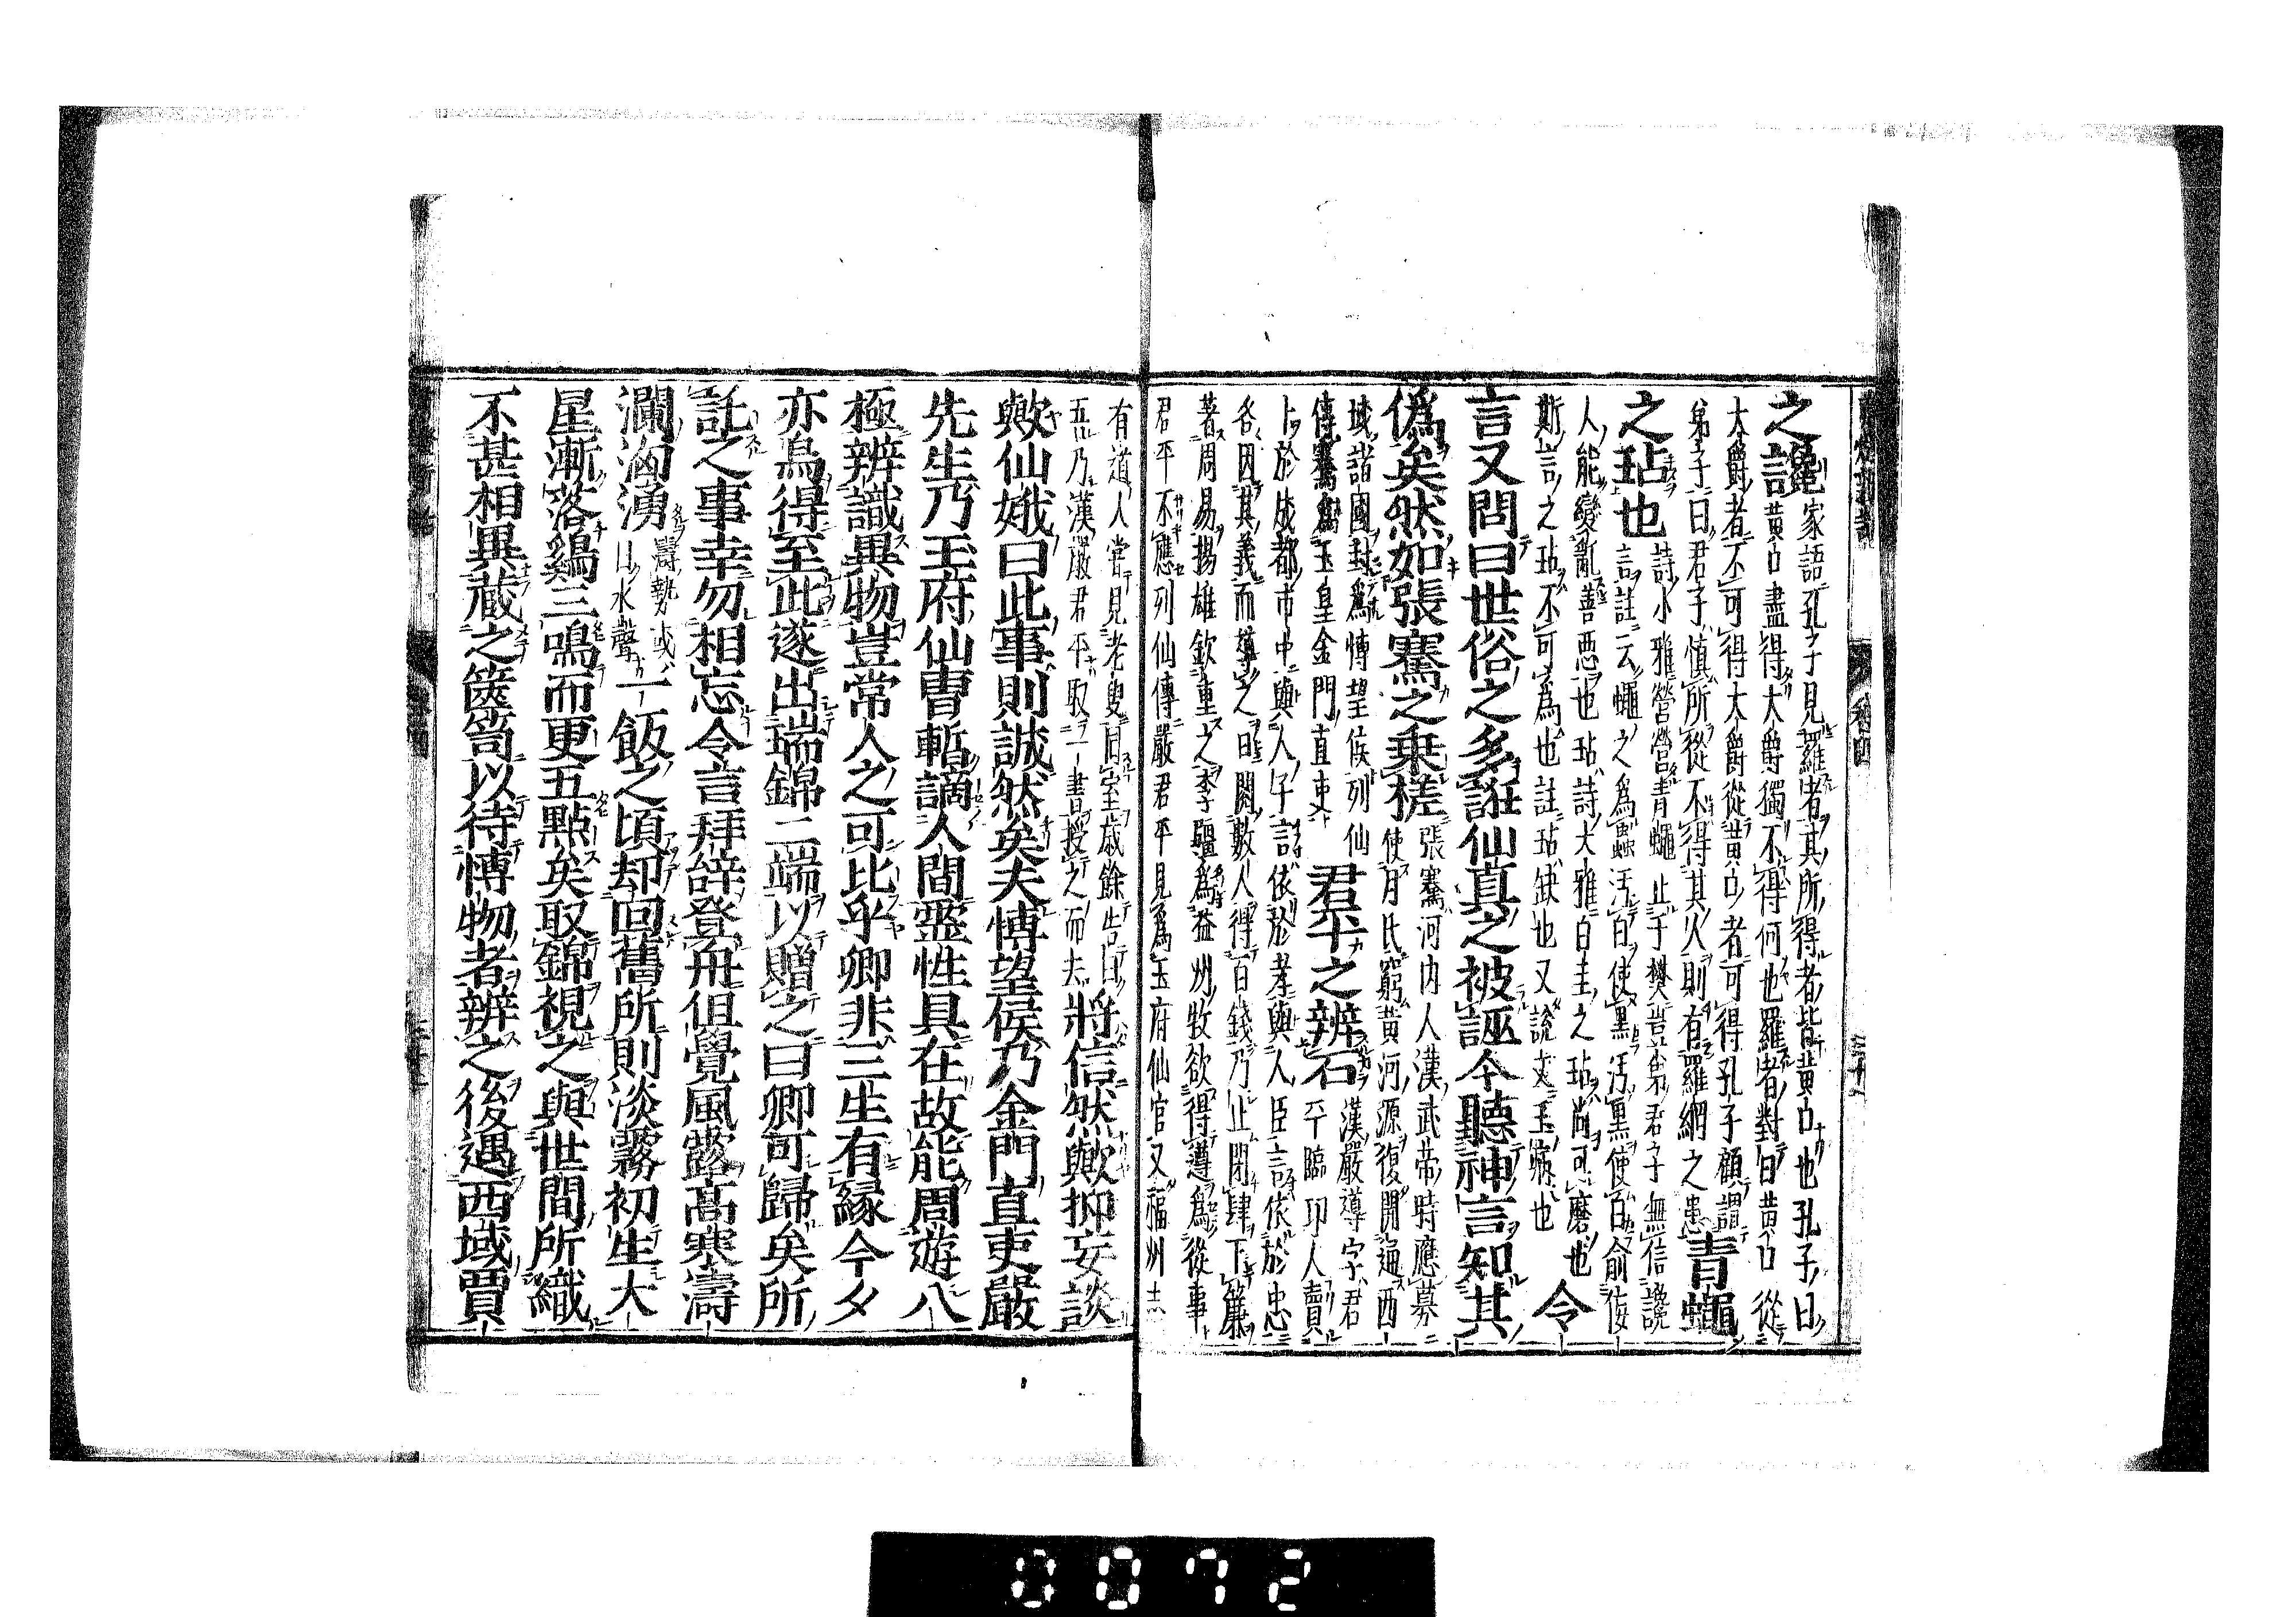 之謗家語孔子見羅者其所得者皆黃口也孔子曰
黃口盡得大爵獨不得何也羅者對曰黃口從
大爵者不可得大爵從黃口者可得孔子顧謂
弟子曰君子慎所從不得其人則有羅網之患青蠅
之玷也詩小雅營營青蠅止于樊豈弟君子無信讒
言註云蠅之為蟲汚白使黑汚黑使白喻佞
人能變亂善惡也玷詩大雅白圭之玷尚可磨也
斯言之玷不可為也註玷缺也又說文玉病也令
言又問曰世俗之多誑仙真之被誣今聽神言知其
偽矣然如張騫之乗槎張騫河內人漢武帝時應募
使月氏窮黃河源復開通西
域諸國封為博望侯列仙
傳騫為玉皇金門直吏君平之辨石漢嚴導字君
平臨卭人賣
卜於成都市中與人子言依於孝與人臣言依於忠
各因其義而導之日閱數人得百錢乃止閉肆下簾
著周易揚雄欽重之李彊為益州牧欲得遵為從事
君平不應列仙傳嚴君平見為玉府仙官又福州
有道人嘗見老叟同室歲餘告曰
吾乃漢嚴君平取一書授之而去將信然歟抑妄談
歟仙娥曰此事則誠然矣夫博望侯乃金門直吏嚴
先生乃玉府仙曹暫謫人間靈性具在故能周遊八
極辨識異物豈常人之可比乎卿非三生有緣今夕
亦烏得至此遂出瑞錦二端以贈之曰卿可歸矣所
託之事幸勿相忘令言拜辞登舟但覺風露高寒濤
瀾洶湧濤勢或
曰水聲一飯之頃却回舊所則淡霧初生大
星漸落鷄三鳴而更五點矣取錦視之與世間所織
不甚相異藏之篋笥以待博物者辨之後遇西域賈
0072